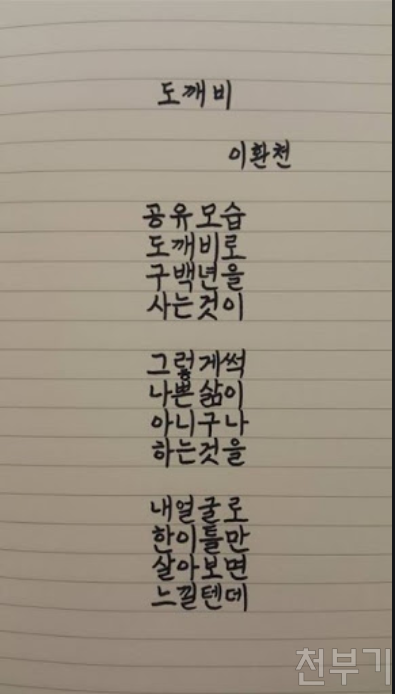 도깨비
이환천
공유모습
도깨비로
구백년을
사는것이
그렇게썩
나쁜삶이
아니구나
하는것을
내얼굴로
한이틀만
살아보면
느낄텐데
천부기